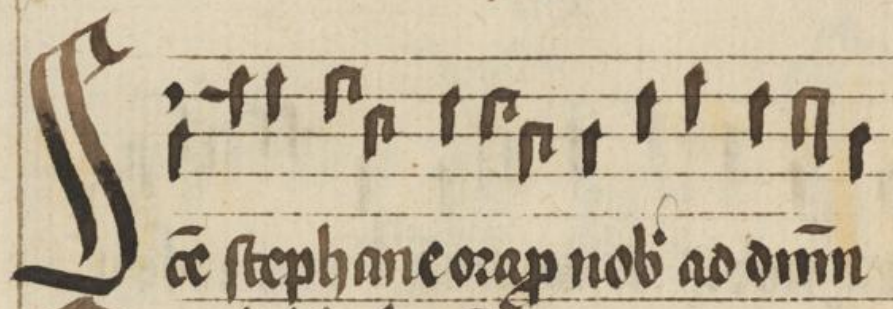 Sc̄e stephane ora ꝓ nob̉ ad dn̄m